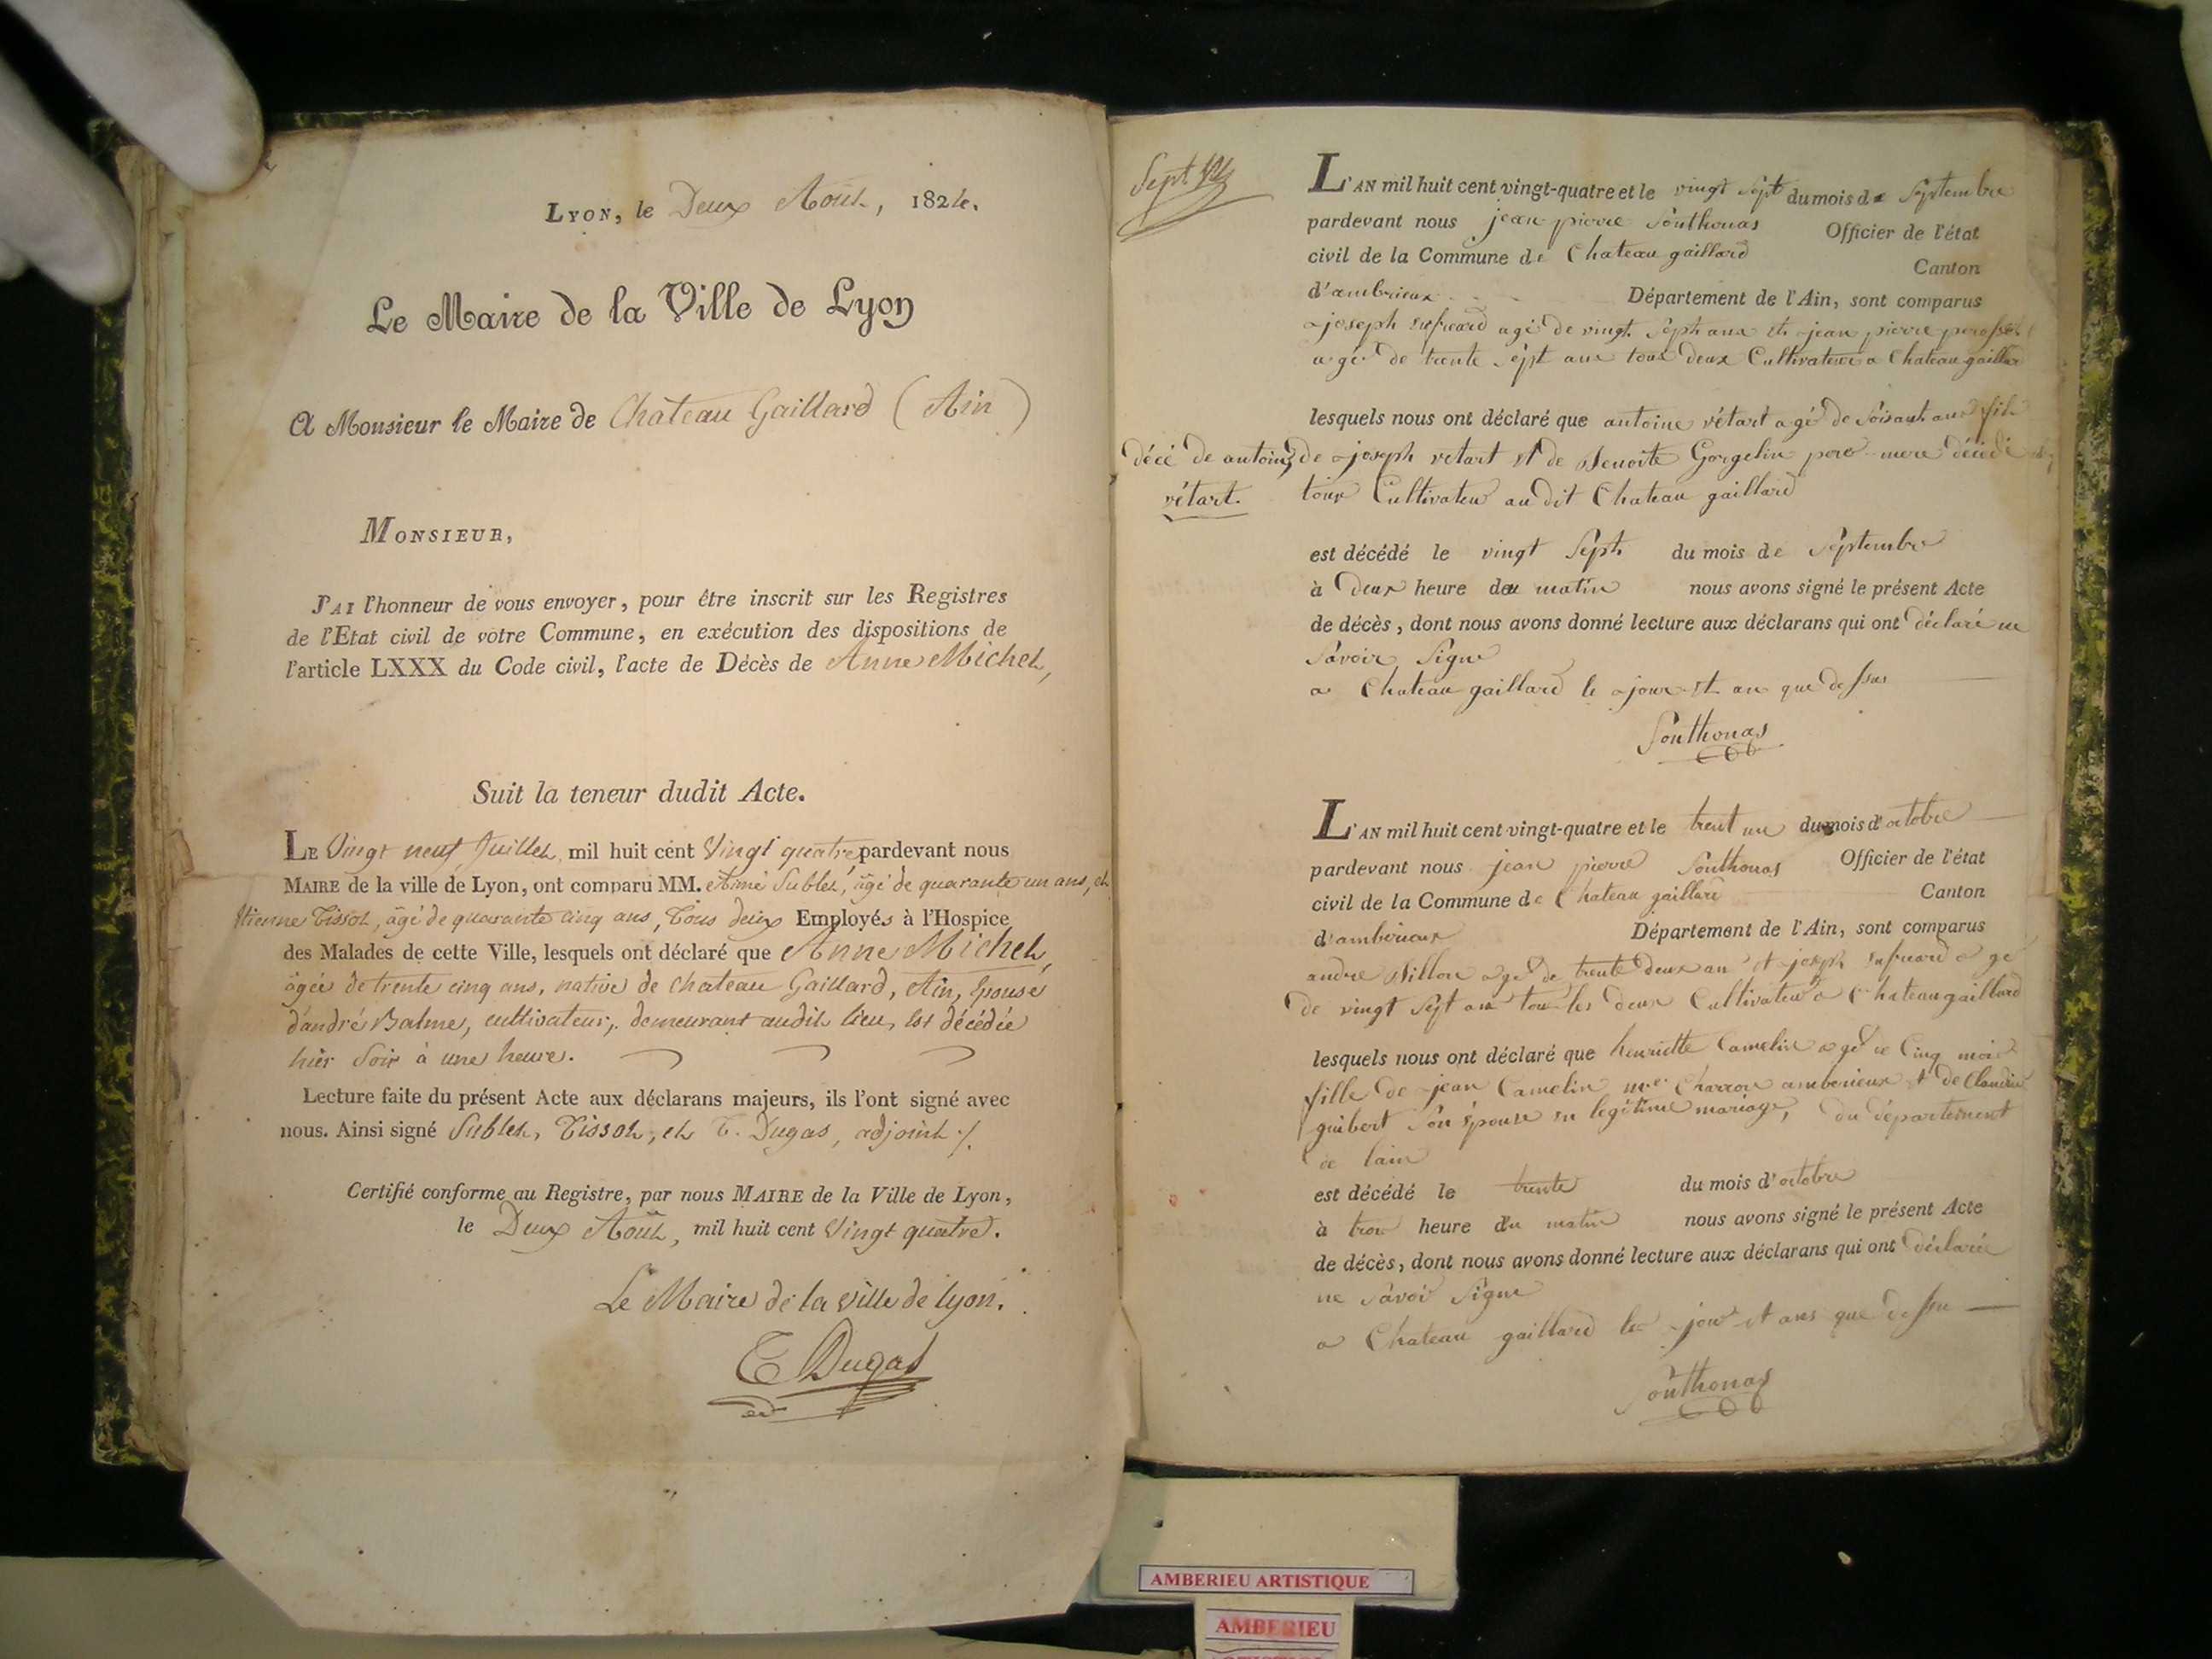 Lyon, le Deux Août, 1824.
Le Maire de la Ville de Lyon
A Monsieur le Maire de Château Gaillard (Ain)
Monsieur,
J'ai l'honneur de vous envoyer, pour être inscrit sur les Registres
de l'Etat civil de votre Commune, en exécution des dispositions de
l'article LXXX du Code civil, l'acte de Décès de Anne Michel,
Suit la teneur dudit Acte.
Le Vingt neuf Juillet, mil huit cent Vingt quatre pardevant nous
Maire de la ville de Lyon, ont comparu MM. Aimé Sublet, âgé de quarante un ans, et
Etienne Tissot, âgé de quarante cinq ans, Tous deux Employés à l'Hospice
des Malades de cette Ville, lesquels ont déclaré que Anne Michel,
âgée de trente cinq ans, native de Chateau Gaillard, Ain, Epouse
d'andré Balme, cultivateur, demeurant audit lieu, Est décédée
hier Soir à une heure.
Lecture faite du présent Acte aux déclarans majeurs, ils l'ont signé avec
nous. Ainsi signé Sublet, Tissot, et T. Dugas, adjoint ./.
Certifié conforme au Registre, par nous Maire de la Ville de Lyon,
le Deux Août, mil huit cent Vingt quatre.
Le Maire de la ville de lyon.
T Dugas
Sept
L'an mil huit cent vingt-quatre et le vingt sept du mois de Septembre
pardevant nous jean pierre Southonas Officier de l'état
civil de la Commune de Chateau gaillard Canton
d'ambrieux Département de l'Ain, sont comparus
joseph agé de vingt Sept ans et jean pierre
agé de trente Sept ans tous deux Cultivateur a Chateau gaillar
lesquels nous ont déclaré que antoine rétart agé de Soisant ans fils
de joseph retart et de Benoite Gorgelin pere mere décédé
tour Cultivateur au dit Chateau gaillard
décé de antoine
rétart.
est décédé le vingt Sept du mois de Septembre
à deux heure du matin nous avons signé le présent Acte
de décès, dont nous avons donné lecture aux déclarans qui ont déclaré ne
Savoir Signe
a Chateau gaillard le jour et an que dessus
Southonas
L'an mil huit cent vingt-quatre et le trent un du mois d'octobre
pardevant nous jean pierre Southonas Officier de l'état
civil de la Commune de Chateau gaillard Canton
d'amberieux Département de l'Ain, sont comparus
andre Billon agé de trente deux an et joseph agé
de vingt Sept ans tou les deux Cultivateur a Chateau gaillard
lesquels nous ont déclaré que henriette Camelin agé de Cinq mois
fille de jean Camelin Charron amberieux et de Claudine
guibert Son épouse en legitime mariage, du département
de lain
est décédé le trente du mois d'octobre
à troi heure du matin nous avons signé le présent Acte
de décès, dont nous avons donné lecture aux déclarans qui ont déclaré
ne Savoir Signe
a Chateau gaillard le jour et ans que dessu
Southonas
AMBERIEU ARTISTIQUE
AMBERIEU